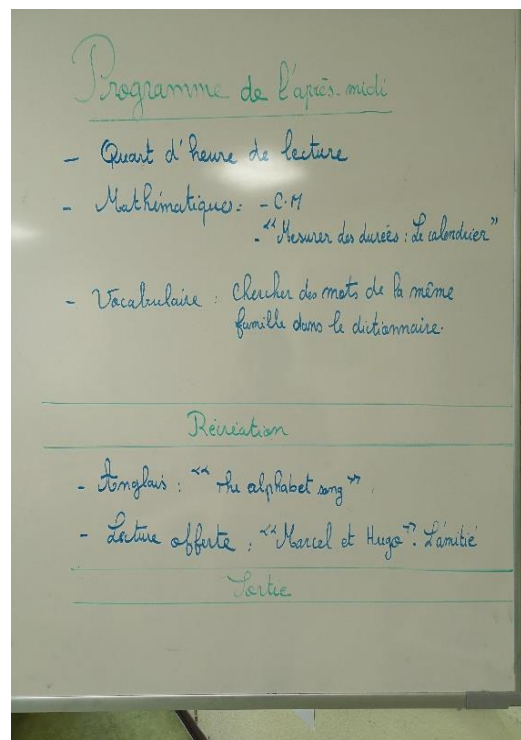 Programme de l'après-midi
- Quart d'heure de lecture
- Mathématiques : - C.M
- "Mesurer des durées : Le calendrier"
- Vocabulaire : Chercher des mots de la même
famille dans le dictionnaire.
Récréation
- Anglais : "The alphabet song"
- Lecture offerte : "Marcel et Hugo". L'amitié
Sortie